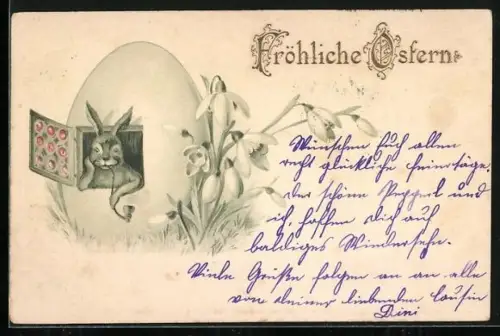 Fröhliche Ostern
Wünschen Euch allen
recht glückliche Feiertage.
Der schöne und
ich, hoffen dich auf
baldiges Wiedersehn.
Viele Grüße folgen an alle
von deiner liebenden Cousin
Dini